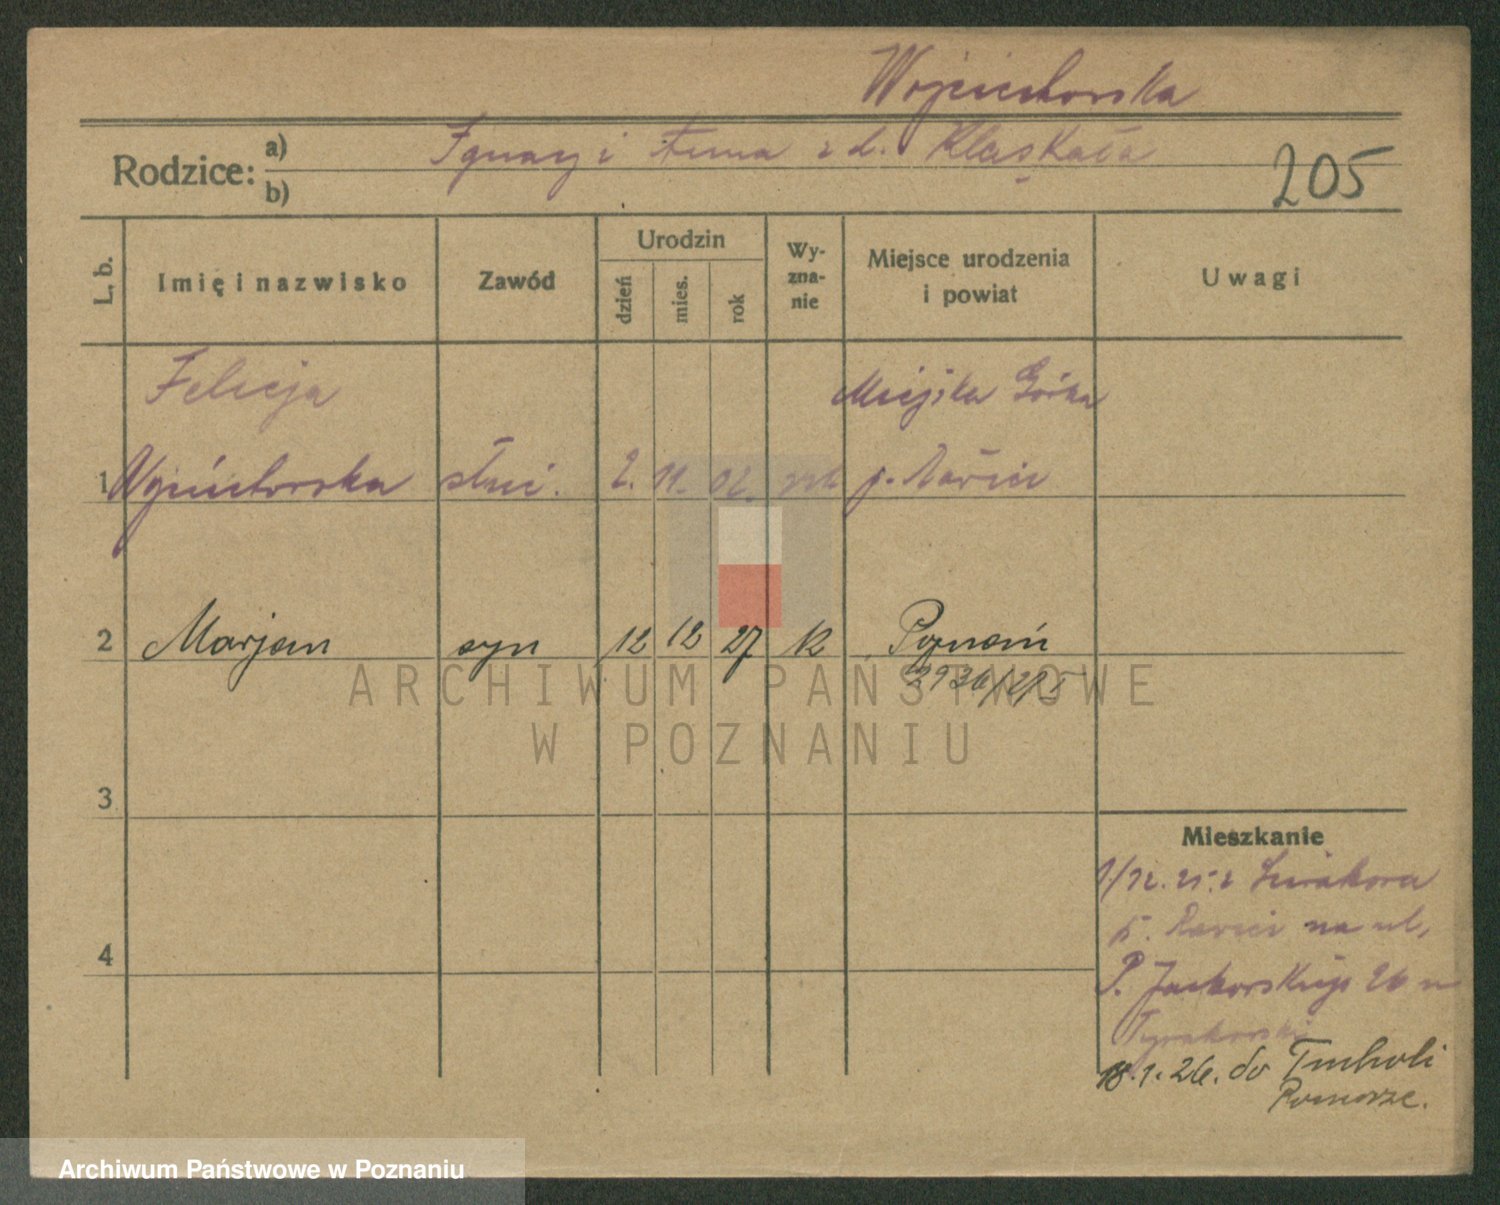 Wojciechowska
Rodzice: a) Ignacy i Anna z d. Klaskała
b)
205
L. b.
Imię i nazwisko
Zawód
Urodzin
dzień
mies.
rok
Wy-
zna-
nie
Miejsce urodzenia
i powiat
Uwagi
Felicja
Miejska Górka
1 Wojciechowska służ. 2. 11. 02. rzk p. Rawicz
2 Marjan syn 12 12 27 k Poznań
2936/2/5
3
Mieszkanie
1/12. 25. z
p. Rawicz na ul.
P. Jackowskiego 26 u
4
18.1.26. do Tucholi
Pomorze.
ARCHIWUM PAŃSTWOWE
W POZNANIU
Archiwum Państwowe w Poznaniu